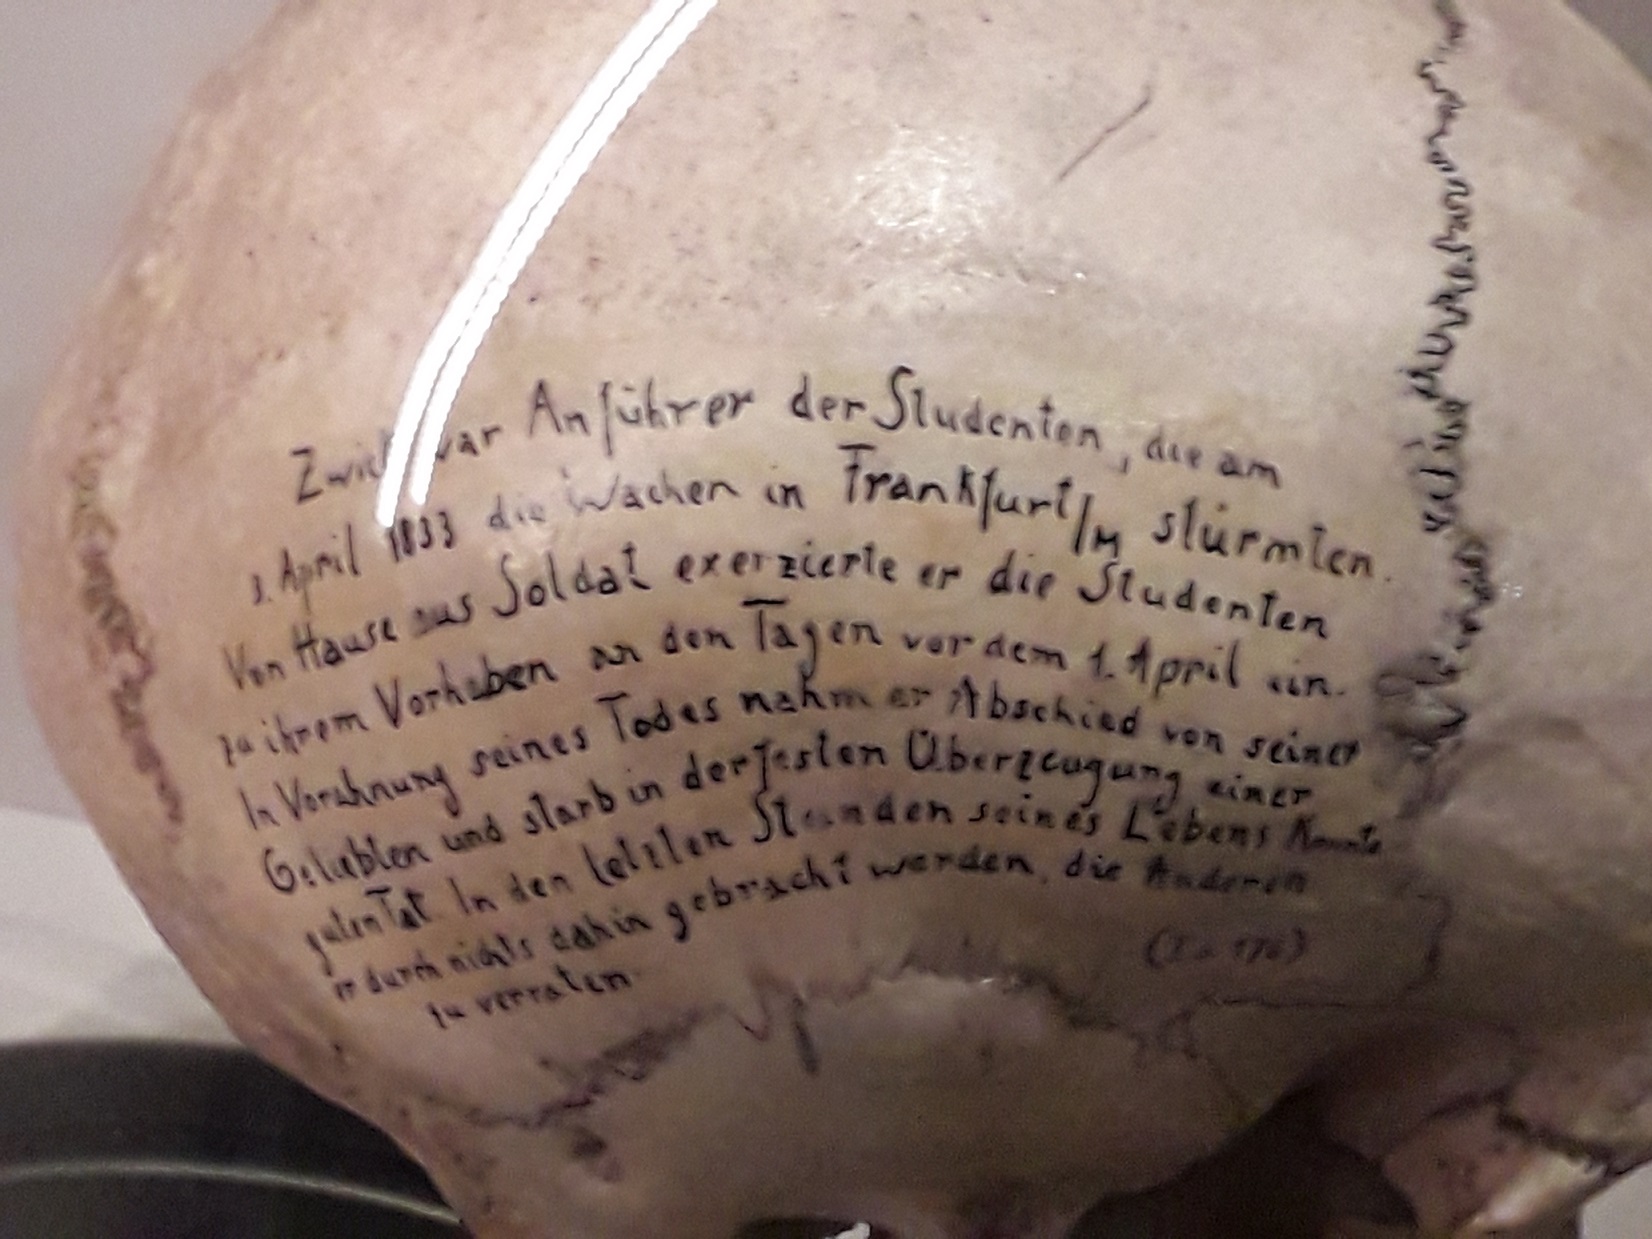 Zwick war Anführer der Studenten, die am
3. April 1833 die Wachen in Frankfurt/M stürmten.
Von Hause aus Soldat exerzierte er die Studenten
zu ihrem Vorhaben an den Tagen vor dem 1. April ein.
In Vorahnung seines Todes nahm er Abschied von seiner
Geliebten und starb in der festen Überzeugung einer
guten Tat. In den letzten Stunden seines Lebens konnte
er durch nichts dahin gebracht werden, die Anderen
zu verraten.